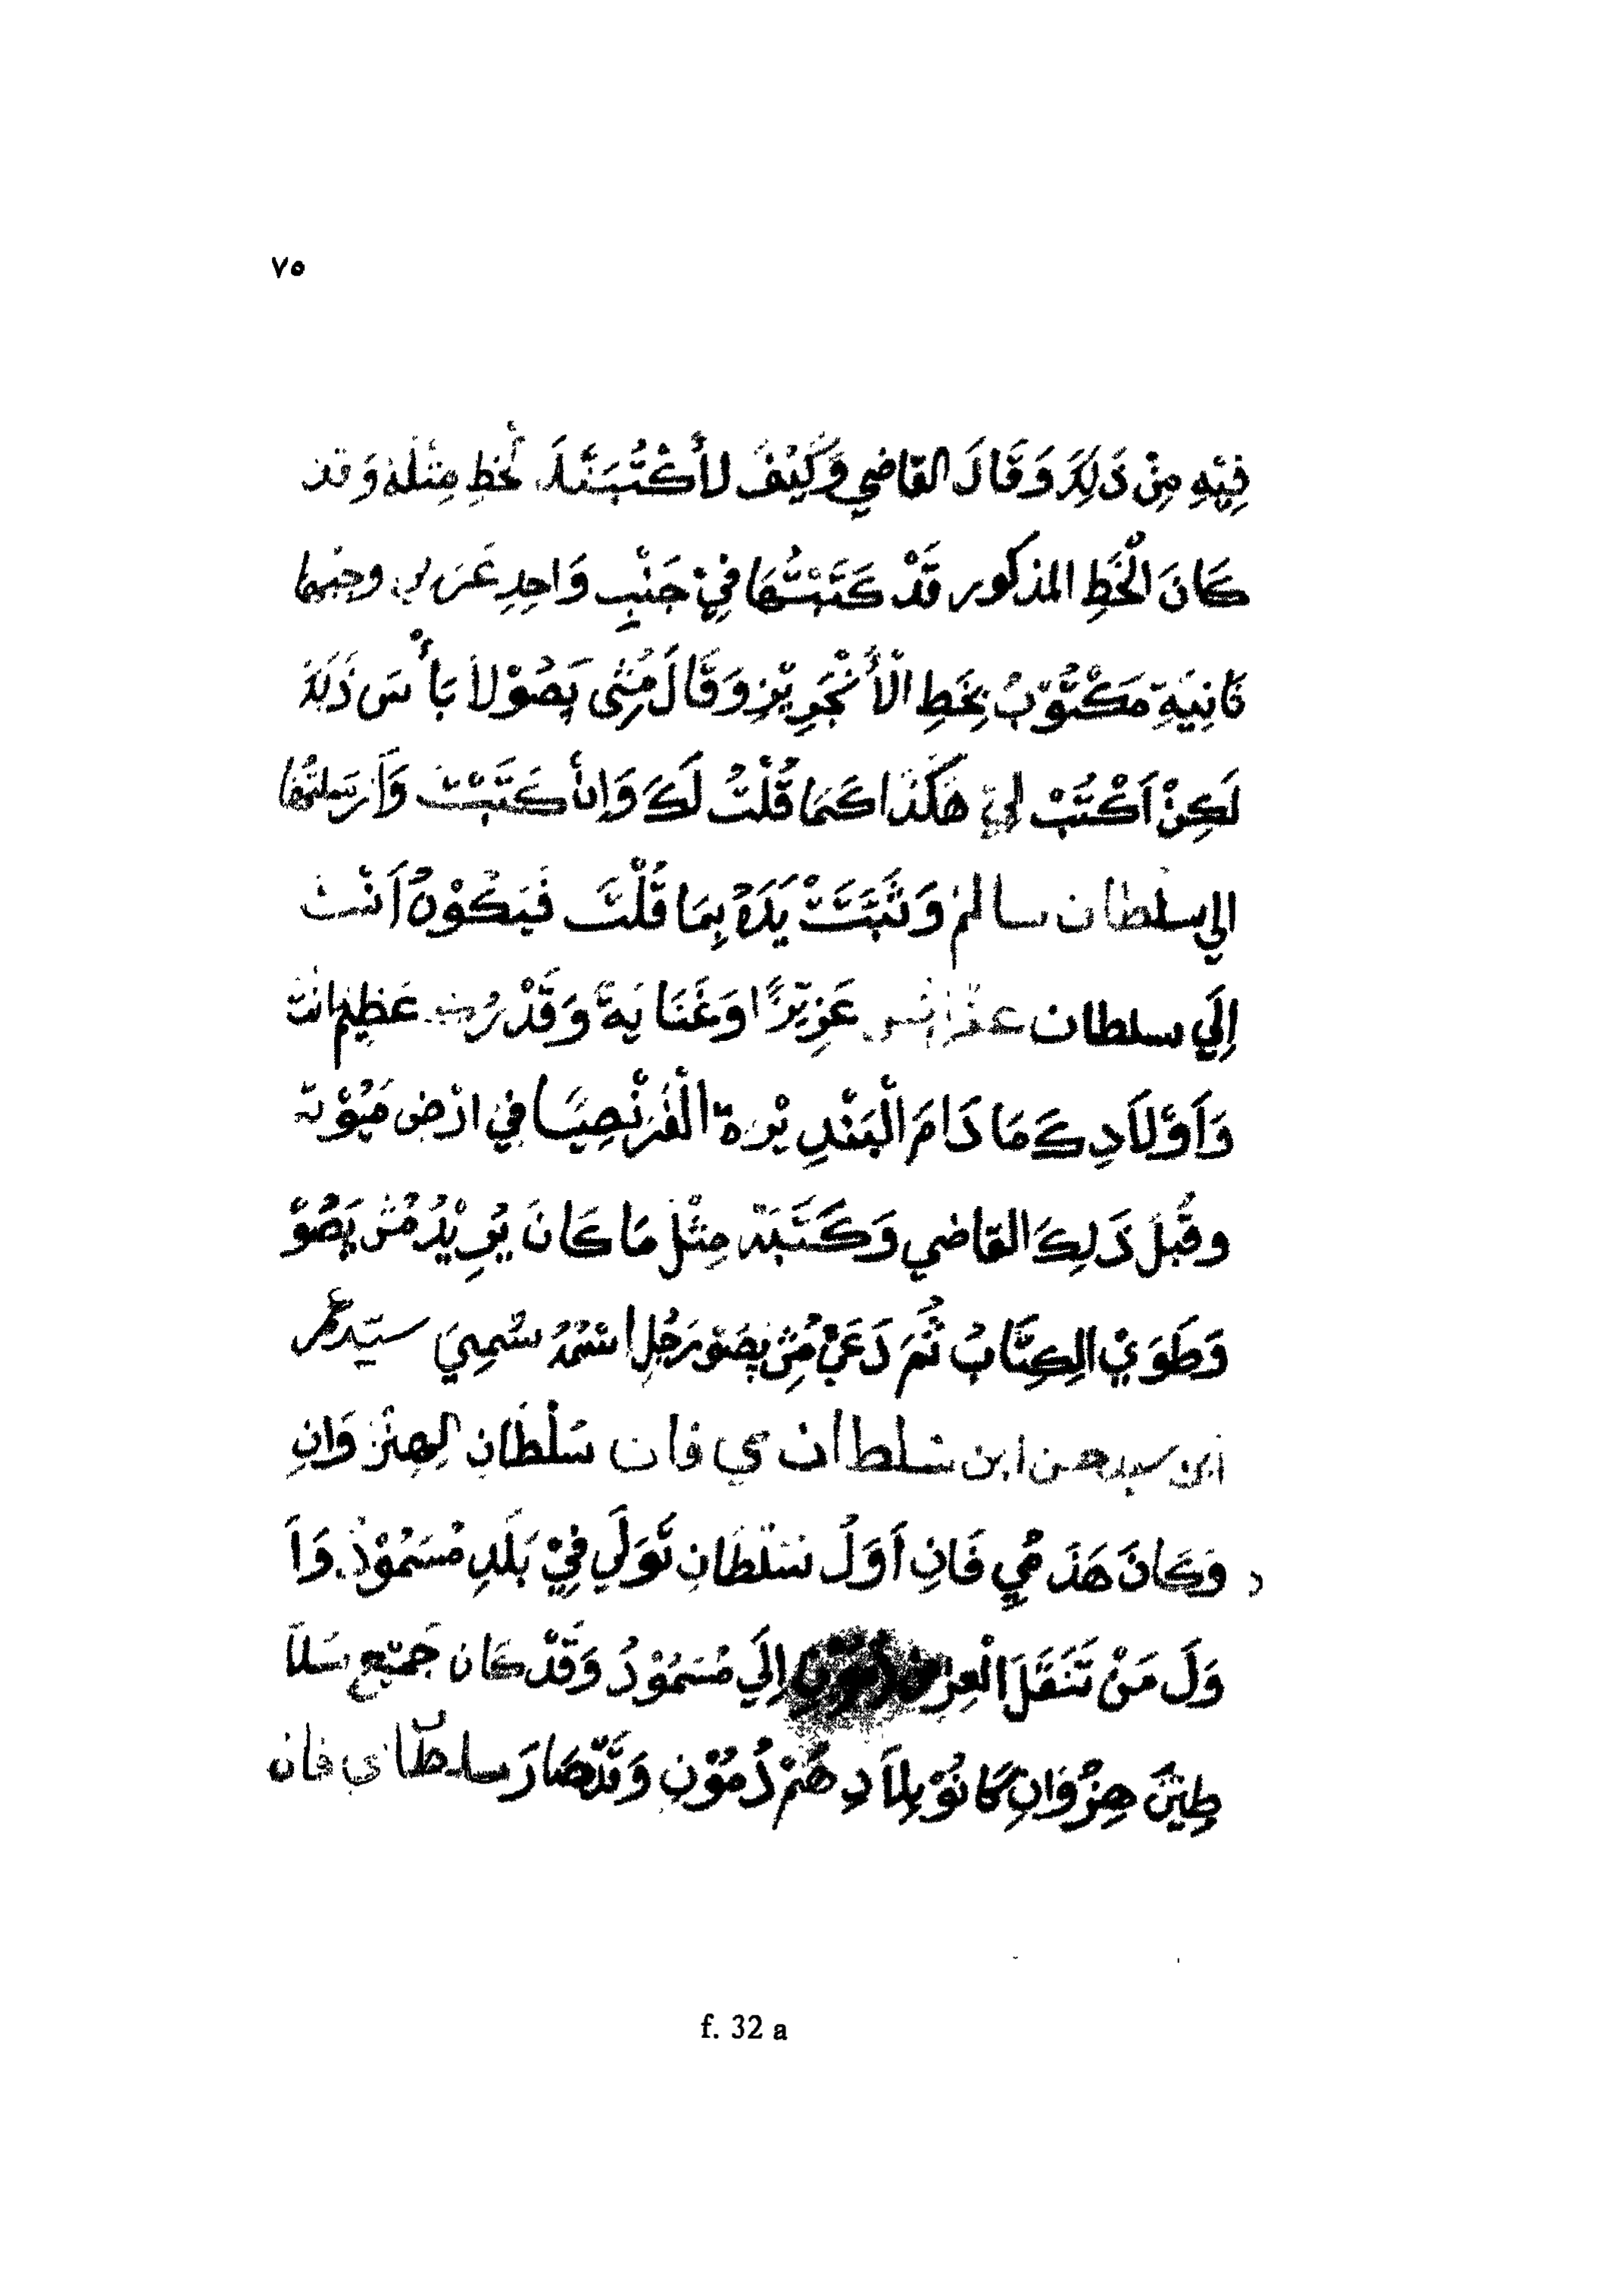 ٧٥
فِيْهِ مِنْ ذَلِكَ وَقَالَ القاضي وَكَيْفَ لأَكْتُبَنَّلَكَ لْخَطِ مِثْلَهُ وَقد
كَانَ الْخَطِ المذكور قَدْ كَتَبْتُهَا فِيْ جَنْبٍ وَاحِدِ عَرَبي وجنبها
ثَانِيَةِ مَكْتُوْبُ بِخَطِ الْأَنْجَرِيْزِ وَقَالَ مُثِى پَصُوْ لأ بَأْسَ ذَلِكَ
لَكِنْ اَكْتُبْ لِيْ هَكَذَا كَمَا قُلْتُ لَكَ وَاِنأَ كَتَبْتَ وَاَرْسَلتُهَا
الي سلطان سالم وَثَبَتَتْ يَدَهُ بِمَا قُلْتَ فَيَكُوْنُ اَنْتَ
اِلَي سلطان عَزِيْزًا وَغَنَايَةً وَقَدْرُتْ عَظِيْم انتَ
وَاَوْلَادِكَ مَا دَامَ الْبَنْدِيْرة الْفَرْنْصِيَا في ارْضِ مَيُوْتَة
وقَبِلَ ذَلِكَ القاضي وَكَتَبَهُ مِثْلَ مَا كَانَ يُرِيْدُ مُثِ پَصُوْ
وَطَوَيْ الكِتَابُ ثُمَ دَعَيْ مُثِ پَصَوْ رَجُلِ اسْمُهُ سُمِيَ سيّد عمر
ابن سيد حسن ابن سلطاان مي فان سَلْطَانِ لِهِنْزَوَانِ
وَكَانَ هَذَ مْيِ فَانِ اَوَلُ سَلْطَانِ تَوَلَي فِيْ بَلَدِ مُسَمُوْدُ. وَاَ
وَلَ مَنْ تَنَقَلَ الْعِزِ دُمُوْنِ اِلَي مُسَمُوْدُ وَقَدْ كَان جَمِيْعِ سَلاَ
طِيْنَ هِنْزُوَانِ كَانُوْ بِلاَدِهُمْ دُمُوْنِ وَقَدْ صَارَ سلطانِ مي فان
f. 32 a